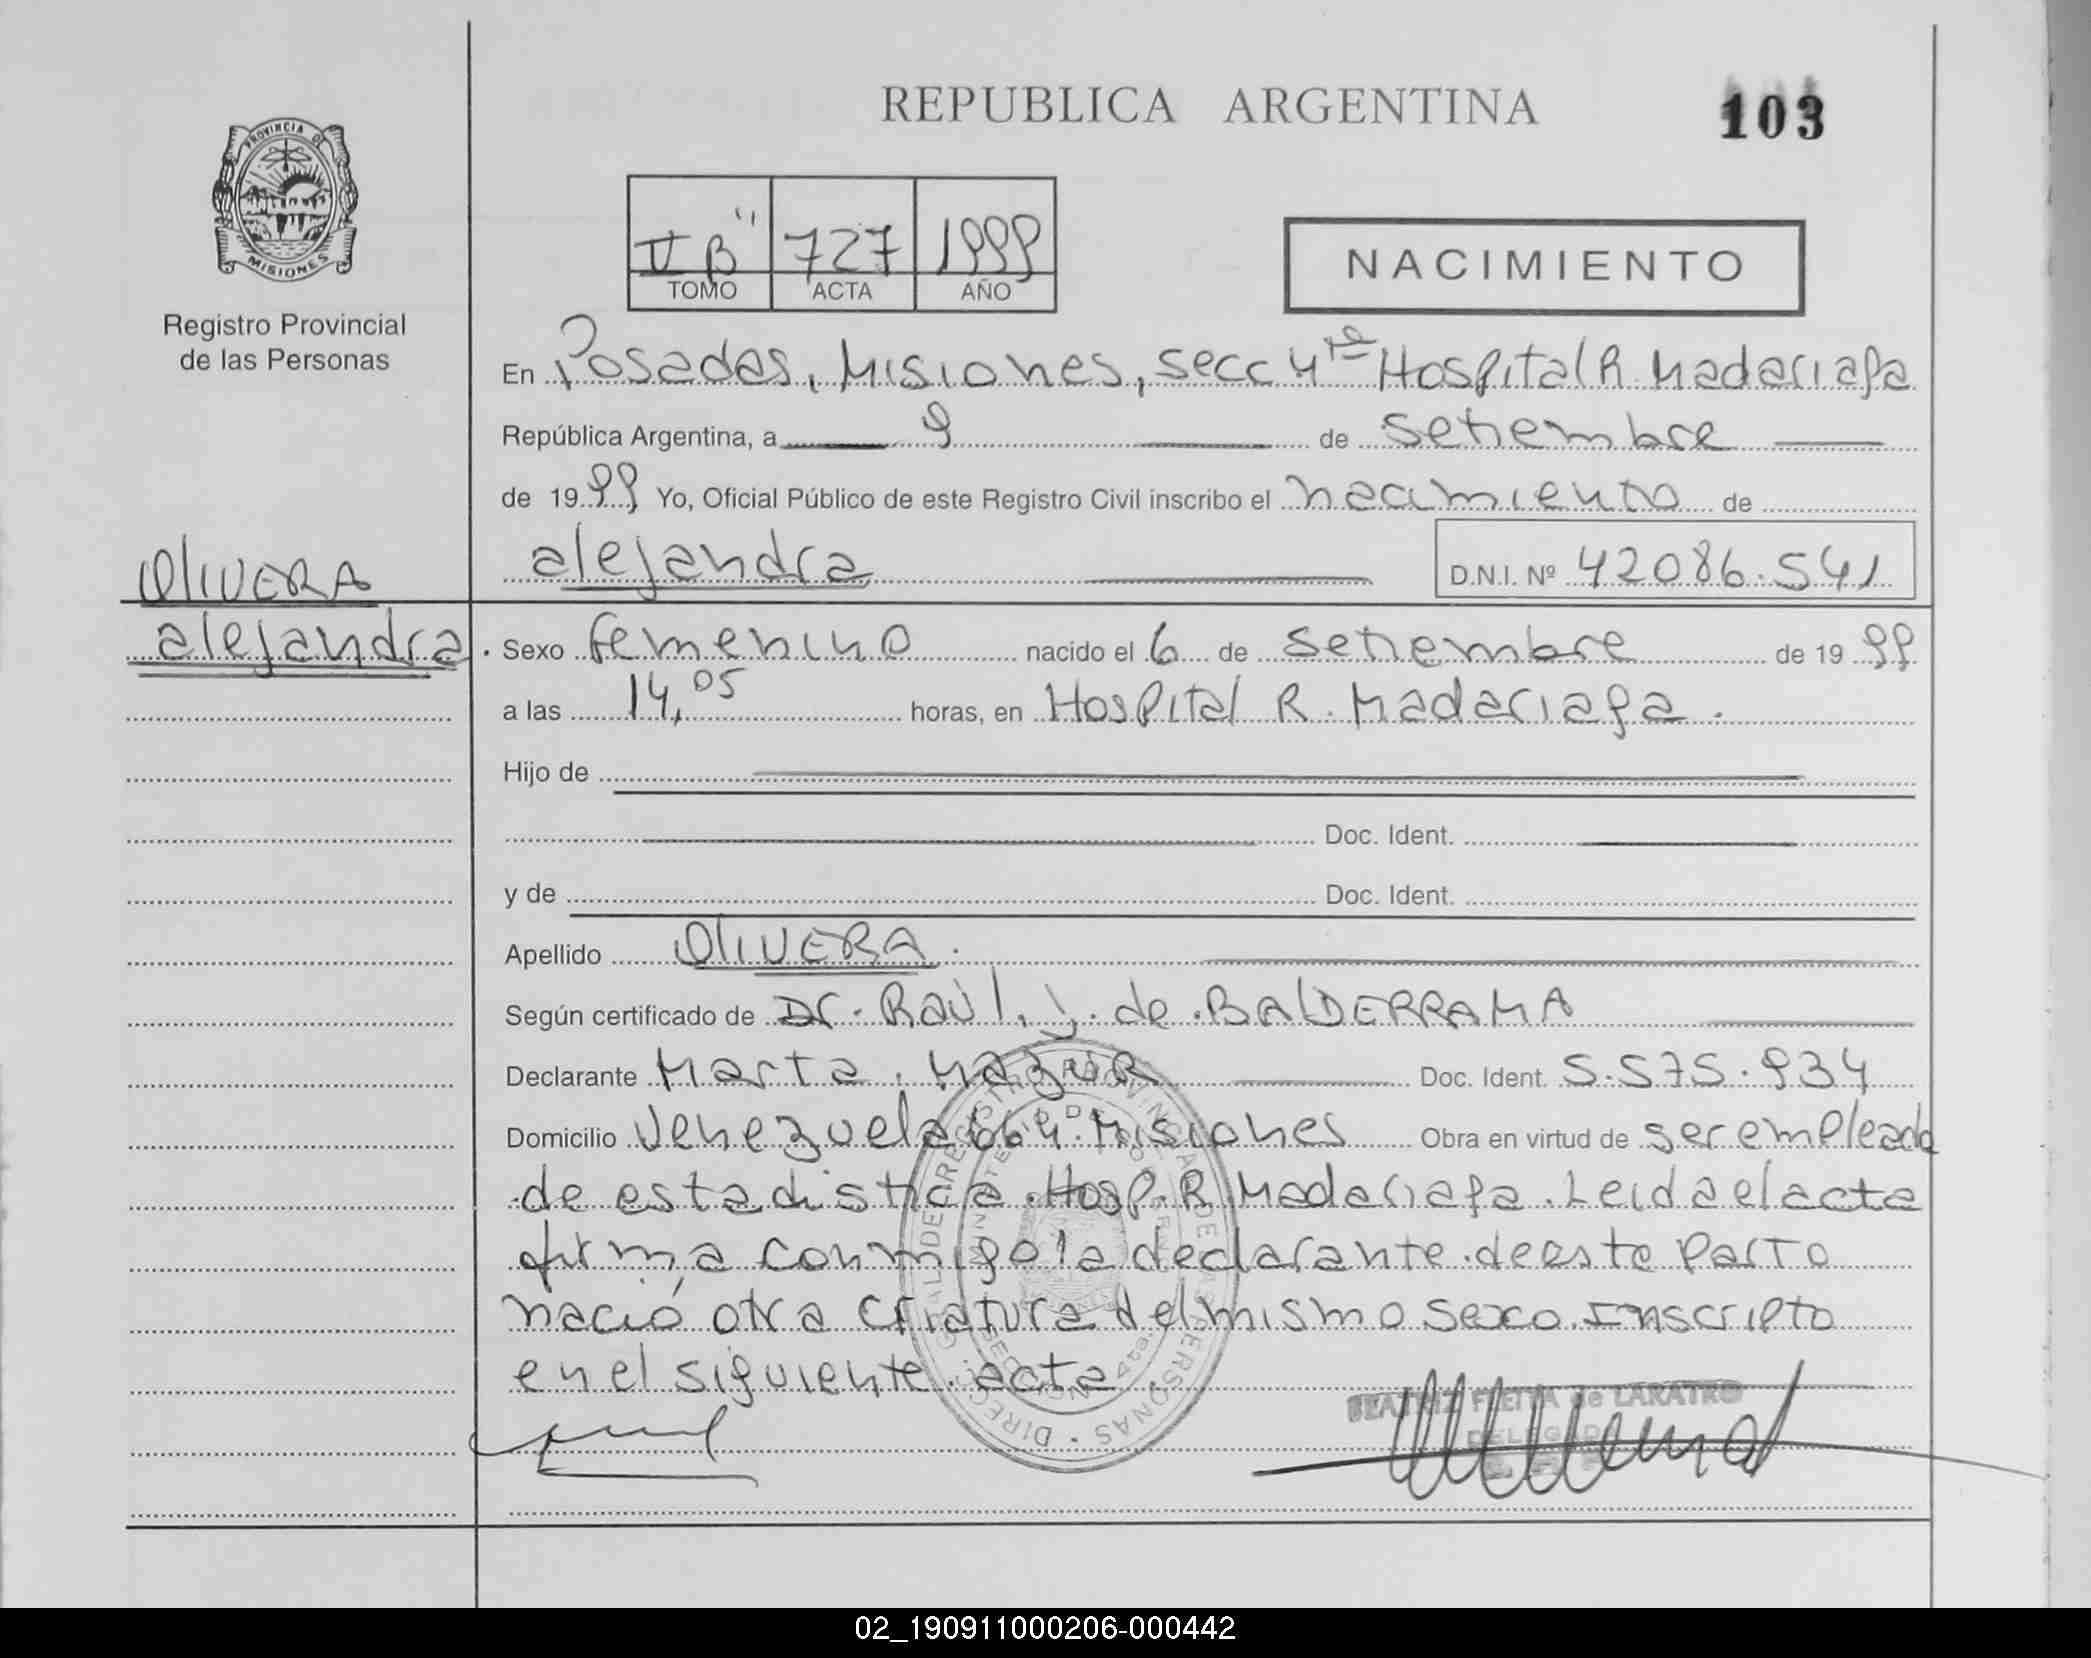 REPUBLICA ARGENTINA
103
PROVINCIA DE
MISIONES
Registro Provincial
de las Personas
V B" 727 1999
TOMO ACTA AÑO
NACIMIENTO
En Posadas, Misiones, secc 4ta Hospital R. Madariaga
República Argentina, a 9 de setiembre
de 1999 Yo, Oficial Público de este Registro Civil inscribo el nacimiento de
alejandra D.N.I. Nº 42086.541
OLIVERA
alejandra. Sexo femenino nacido el 6 de setiembre de 1999
a las 14,05 horas, en Hospital R. Madariaga.
Hijo de
Doc. Ident.
y de Doc. Ident.
Apellido OLIVERA.
Según certificado de Dr. Raúl. J. de BALDERRAMA
Declarante Marta. Doc. Ident. 5.575.934
Domicilio Venezuela 664. Misiones Obra en virtud de ser empleada
de estadistica. Hosp. R. Madariaga. Leida el acta
firma conmigo la declarante. de este parto
nació otra criatura del mismo sexo. Inscripto
en el siguiente acta.
BEATRIZ FLEITA de LARATRO
DELEGADA
02_190911000206-000442